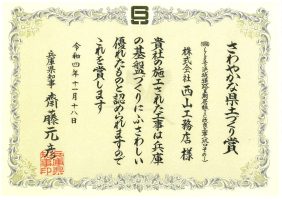 さわやかな県土づくり賞
株式会社 西山工務店 様
貴社の施工された工事は兵庫
の基盤づくりにふさわしい
優れたものと認められますので
これを賞します
令和四年十一月十八日
兵庫県知事 齋藤元彦